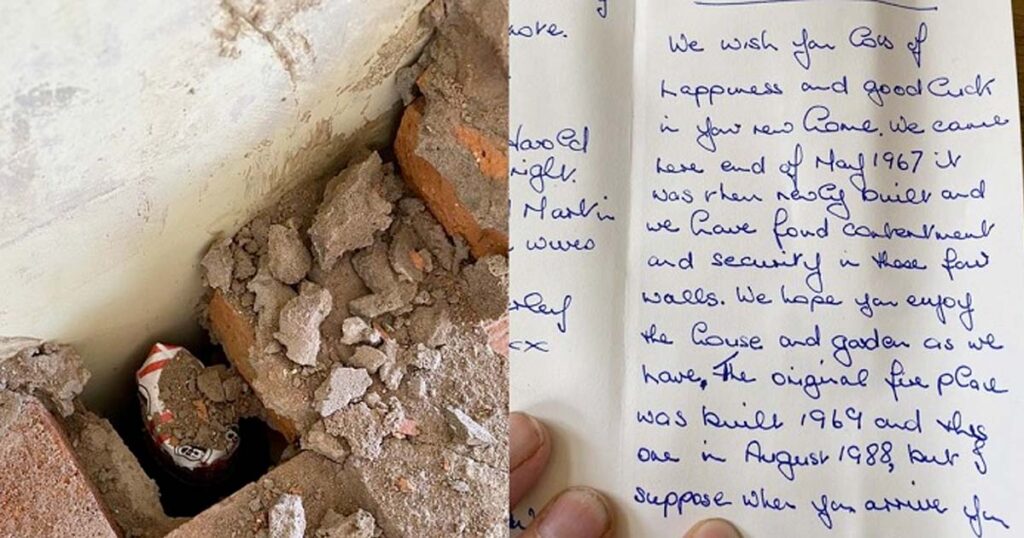 more.
Harold
right.
Martin
wives
x
We wish you lots of
happiness and good luck
in your new home. We came
here end of May 1967 it
was then newly built and
we have fond contentment
and security in these four
walls. We hope you enjoy
the house and garden as we
have, The original fire place
was built 1969 and this
one in August 1988, but I
suppose when you arrive you